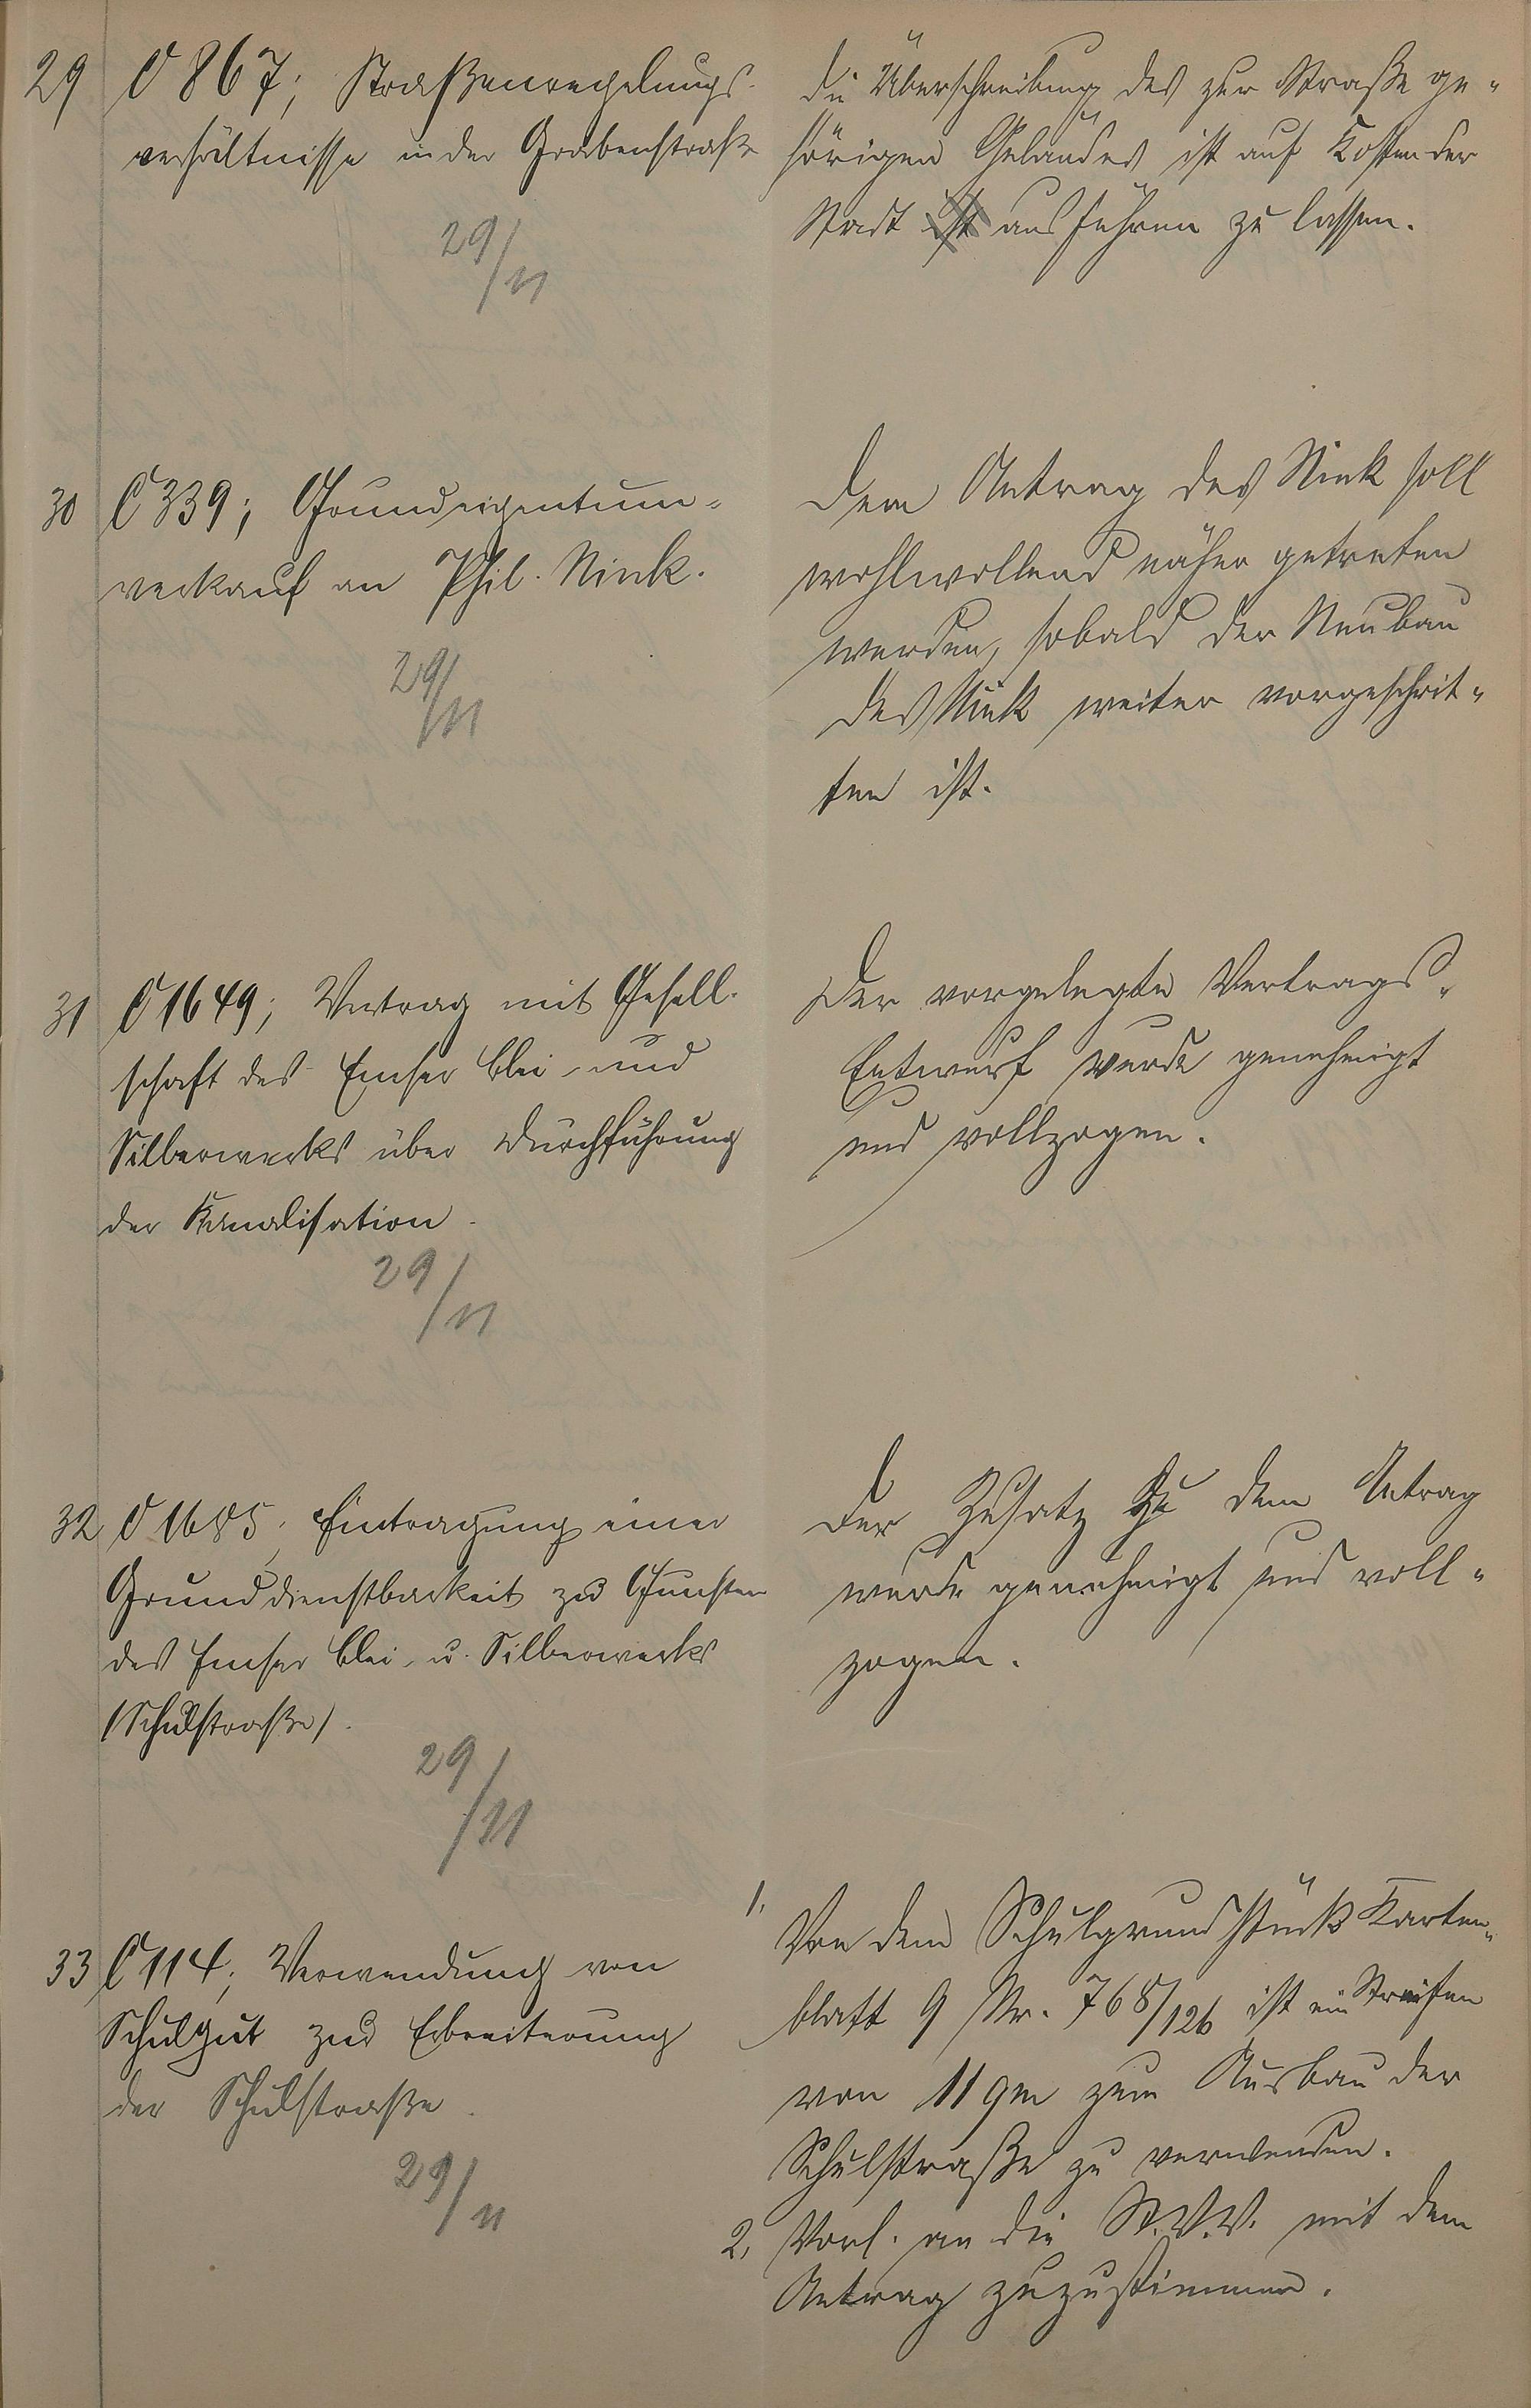 29 C 867; Straßenregelungs-
verhältnisse in der Grabenstraße
29/11
Die Überschreibung des zur Straße ge-
hörigen Geländes ist auf Kosten der
Stadt ist ausführen zu lassen.
30 C 339; Grundeigentum-
verkauf an Phil. Nink.
29/11
Dem Antrag des Nink soll
wohlwollend näher getreten
werden, sobald der Neubau
des Nink weiter vorgeschrit-
ten ist.
31 C 1649; Vertrag mit Gesell-
schaft des Emser Blei- und
Silberwerks über Durchführung
der Kanalisation.
29/11
Der vorgelegte Vertrags-
Entwurf wurde genehmigt
und vollzogen.
32 C 1685; Eintragung einer
Grunddienstbarkeit zu Gunsten
des Emser Blei- u. Silberwerks
(Schulstraße).
29/11
Der Zusatz zu dem Antrag
wurde genehmigt und voll-
zogen.
33 C 114; Verwendung von
Schulgut zur Erbreiterung
der Schulstraße.
29/11
1. Von dem Schulgrundstück Karten-
blatt 9 Nr. 768/126 ist ein Streifen
von 11 qm zum Ausbau der
Schulstraße zu verwenden.
2. Vorl. an die St.V.V. mit dem
Antrag zuzustimmen.